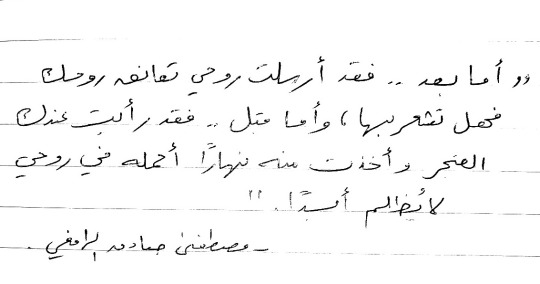 ,, أما بعد .. فقد أرسلت روحي تعانق روحك
فهل تشعر بها ، وأما قبل .. فقد رأيت عندك
الفجر وأخذت منه نهارًا أحمله في روحي
لا يُظلم أبدًا. ,,
ـ مصطفى صادق الرافعي .